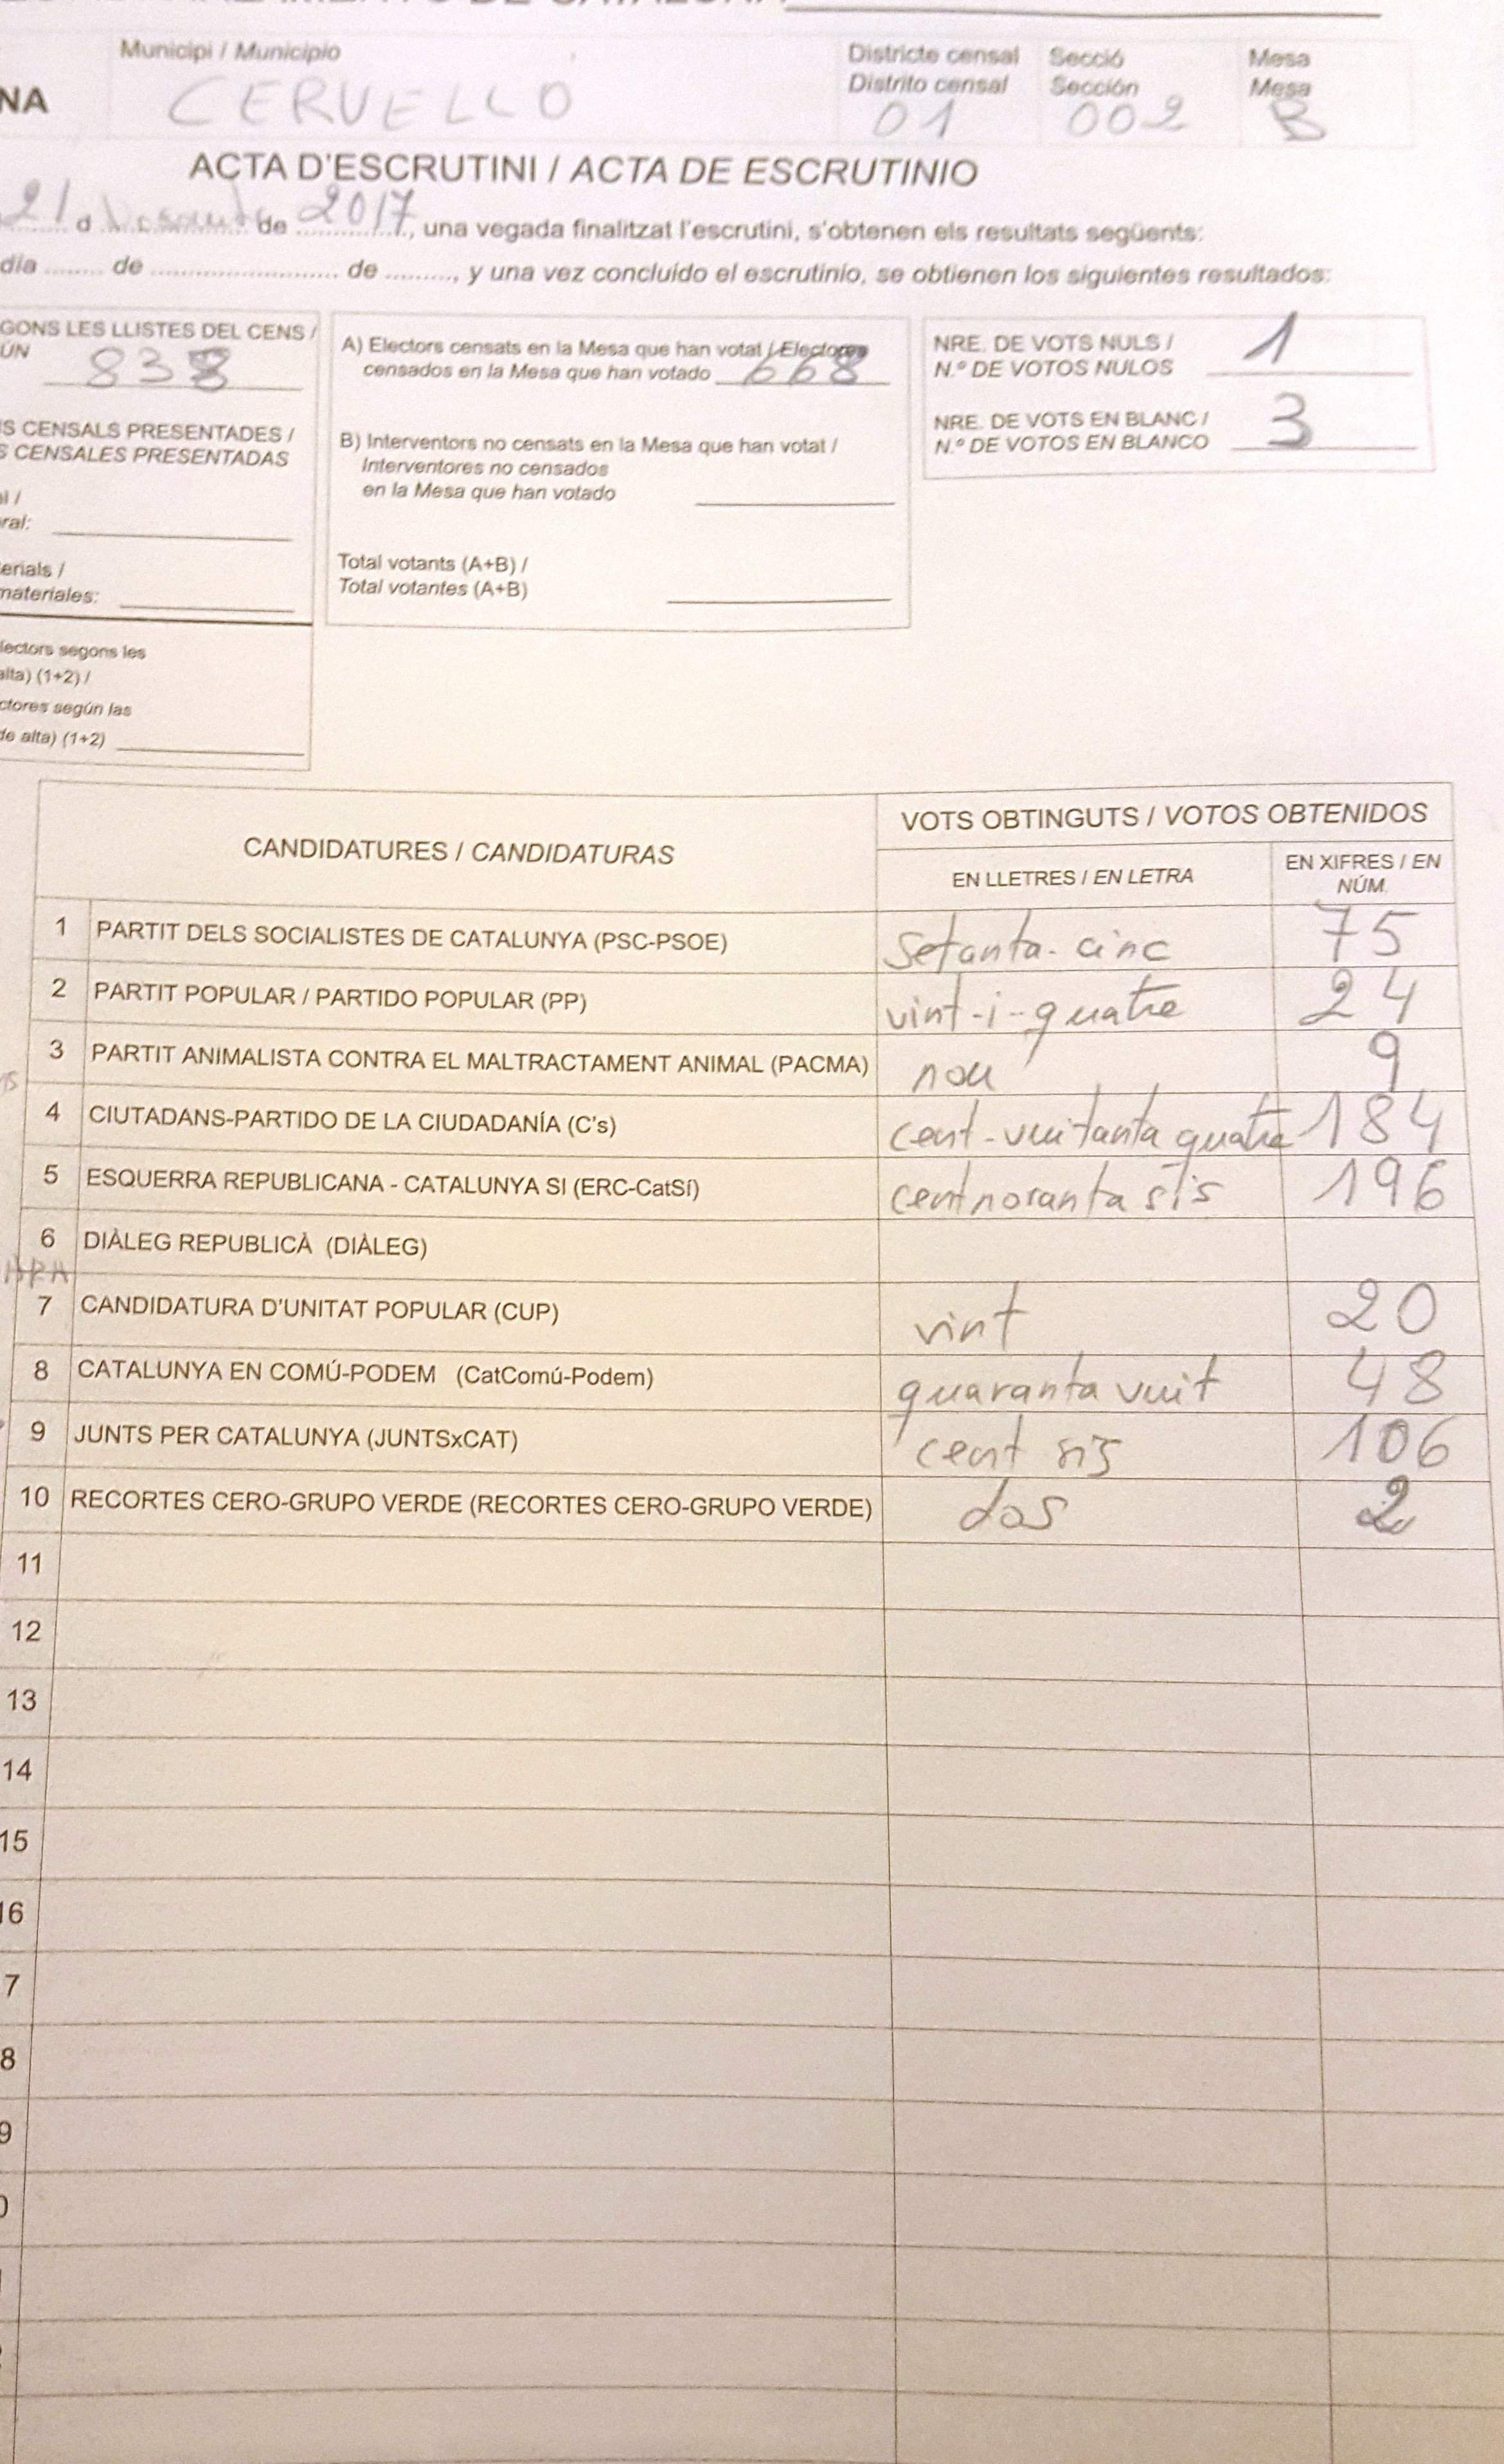 Municipi / Municipio
Districte censal Secció Mesa
Distrito censal Sección Mesa
NA CERVELLO 01 002 B
ACTA D'ESCRUTINI / ACTA DE ESCRUTINIO
21 d de 2017, una vegada finalitzat l'escrutini, s'obtenen els resultats següents:
día ........ de ........................ de ........., y una vez concluido el escrutinio, se obtienen los siguientes resultados:
GONS LES LLISTES DEL CENS /
ÚN 838
S CENSALS PRESENTADES /
S CENSALES PRESENTADAS
al /
ral:
erials /
materiales:
lectors segons les
alta) (1+2) /
ctores según las
de alta) (1+2)
A) Electors censats en la Mesa que han votat / Electores
censados en la Mesa que han votado 668
B) Interventors no censats en la Mesa que han votat /
Interventores no censados
en la Mesa que han votado
Total votants (A+B) /
Total votantes (A+B)
NRE. DE VOTS NULS / 1
N.º DE VOTOS NULOS
NRE. DE VOTS EN BLANC / 3
N.º DE VOTOS EN BLANCO
CANDIDATURES / CANDIDATURAS
VOTS OBTINGUTS / VOTOS OBTENIDOS
EN LLETRES / EN LETRA
EN XIFRES / EN
NÚM.
1 PARTIT DELS SOCIALISTES DE CATALUNYA (PSC-PSOE) setanta-cinc 75
2 PARTIT POPULAR / PARTIDO POPULAR (PP) vint-i-quatre 24
3 PARTIT ANIMALISTA CONTRA EL MALTRACTAMENT ANIMAL (PACMA) nou 9
4 CIUTADANS-PARTIDO DE LA CIUDADANÍA (C's) cent-vuitanta quatre 184
5 ESQUERRA REPUBLICANA - CATALUNYA SI (ERC-CatSí) centnoranta sis 196
6 DIÀLEG REPUBLICÀ (DIÀLEG)
7 CANDIDATURA D'UNITAT POPULAR (CUP) vint 20
8 CATALUNYA EN COMÚ-PODEM (CatComú-Podem) quaranta vuit 48
9 JUNTS PER CATALUNYA (JUNTSxCAT) cent sis 106
10 RECORTES CERO-GRUPO VERDE (RECORTES CERO-GRUPO VERDE) dos 2
11
12
13
14
15
16
7
8
9